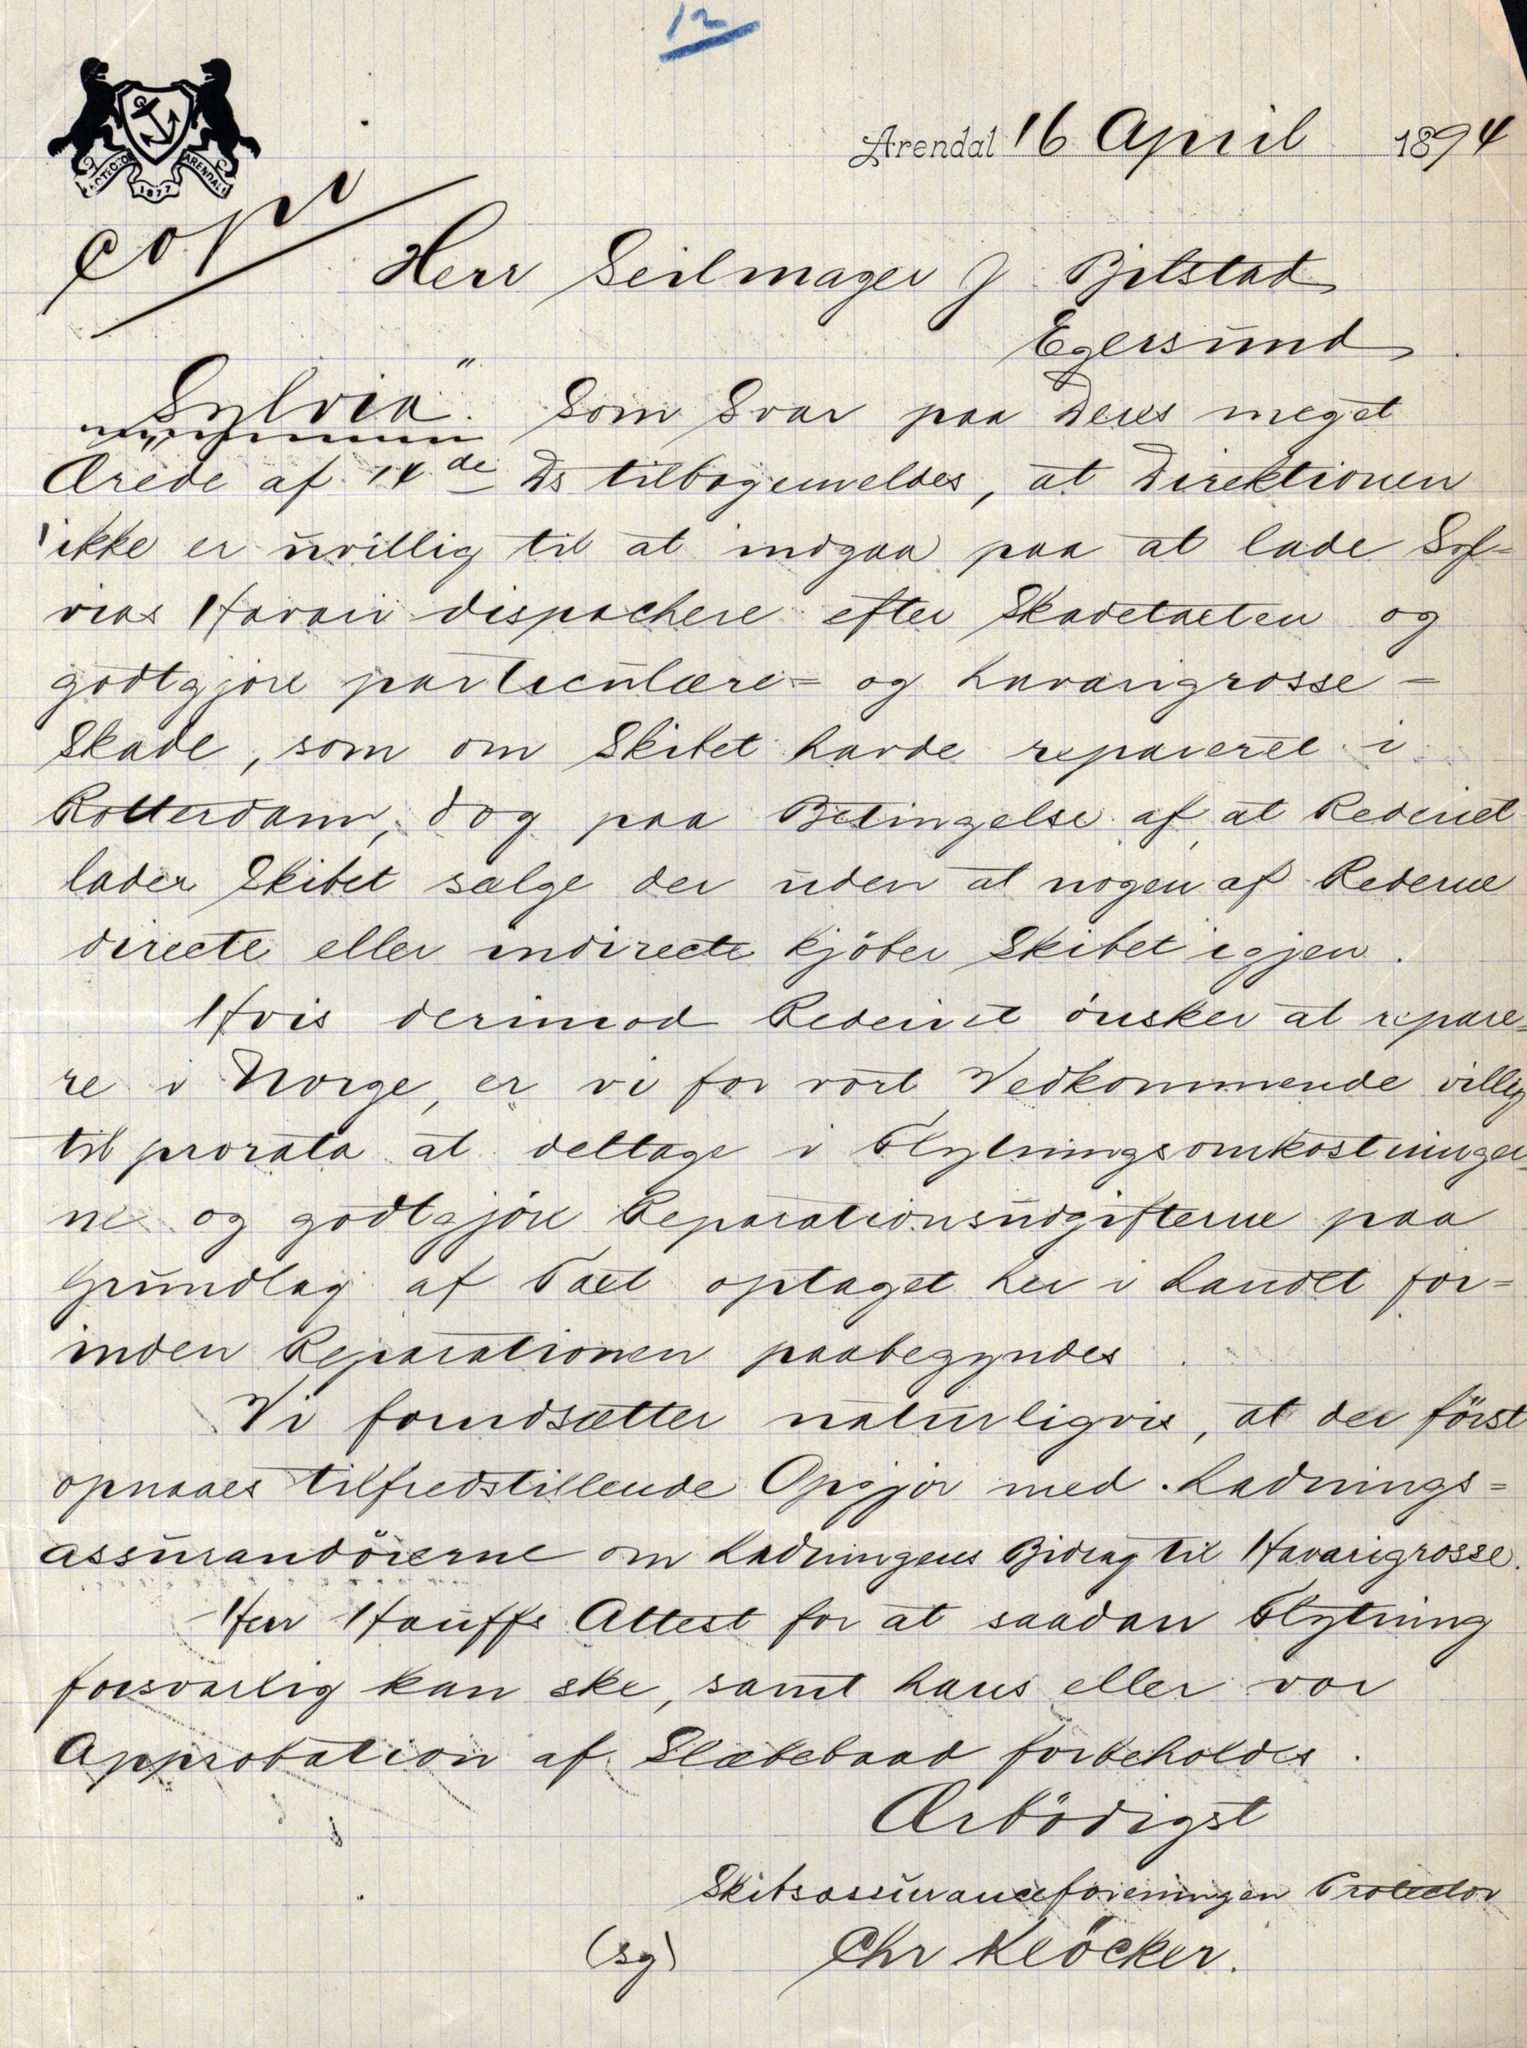 12
PROTECTOR ARENDAL
1877
Arendal 16 April 1894
copi
Herr Seilmager J Bilstad
Egersund
"Sylvia". Som Svar paa Deres meget
Ærede af 14de Ds tilbagemeldes, at Direktionen
ikke er uvillig til at indgaa paa at lade Syl-
vias Havari dispachere efter Skadetaxten og
godtgjøre particulære- og havarigrosse-
Skade, som om Skibet havde repareret i
Rotterdam, dog paa Betingelse af at Rederiet
lader Skibet sælge der uden at nogen af Rederne
directe eller indirecte kjöber Skibet igjen.
Hvis derimod Rederiet önsker at repare-
re i Norge, er vi for vort Vedkommende villig
til prorata at deltage i Flytningsomkostninger-
ne og godtgjöre Reparationsudgifterne paa
Grundlag af Taxt optaget her i Landet for-
inden Reparationen paabegyndes.
Vi forudsætter naturligvis, at der först
opnaaes tilfredstillende Opgjör med Ladnings-
assurandörerne om Ladningens Bidrag til Havarigrosse.
Herr Hauffs Attest for at saadan Flytning
forsvarlig kan ske, samt hans eller vor
Approbation af Slæbebaad forbeholdes.
Ærbödigst
Skibsassuranceforeningen Protector
(sg) Chr Klöcker.